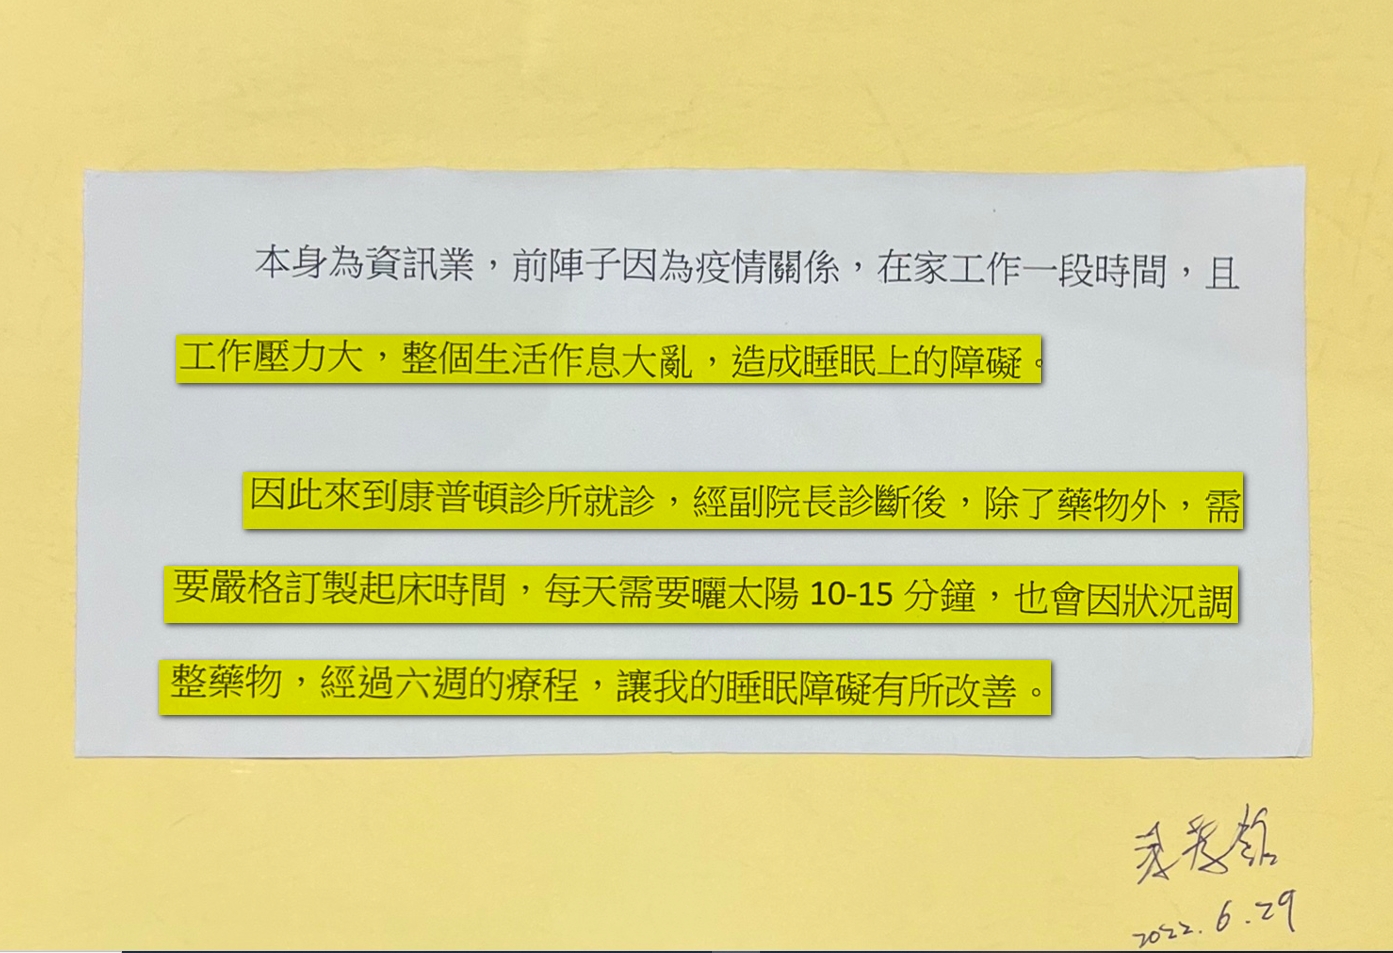 本身為資訊業，前陣子因為疫情關係，在家工作一段時間，且
工作壓力大，整個生活作息大亂，造成睡眠上的障礙。
因此來到康普頓診所就診，經副院長診斷後，除了藥物外，需
要嚴格訂製起床時間，每天需要曬太陽 10-15 分鐘，也會因狀況調
整藥物，經過六週的療程，讓我的睡眠障礙有所改善。
2022.6.29